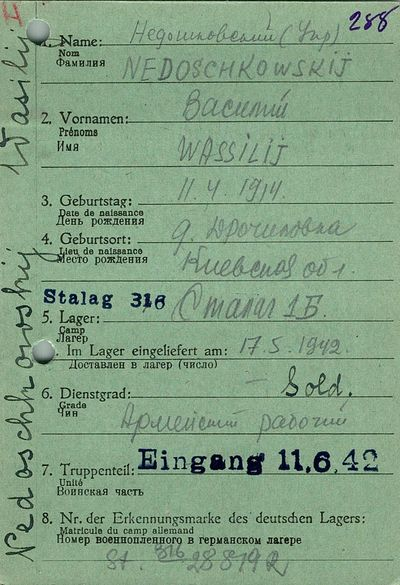 II
288
1. Name: Недошковский (Укр)
Nom
Фамилия NEDOSCHKOWSKIJ
2. Vornamen: Василий
Prénoms
Имя WASSILIJ
3. Geburtstag: 11.4.1914.
Date de naissance
День рождения
4. Geburtsort: д.
Lieu de naissance
Место рождения Киевской обл.
Stalag 316
5. Lager: Сталаг 1Б.
Camp
Лагерь
Im Lager eingeliefert am: 17.5.1942.
Доставлен в лагерь (число)
6. Dienstgrad: — Sold.
Grade
Чин Армейский рабочий
7. Truppenteil: Eingang 11.6.42
Unité
Воинская часть
8. Nr. der Erkennungsmarke des deutschen Lagers:
Matricule du camp allemand
Номер военнопленного в германском лагере
St. 316 28819
Nedoschkowskij Wasilij